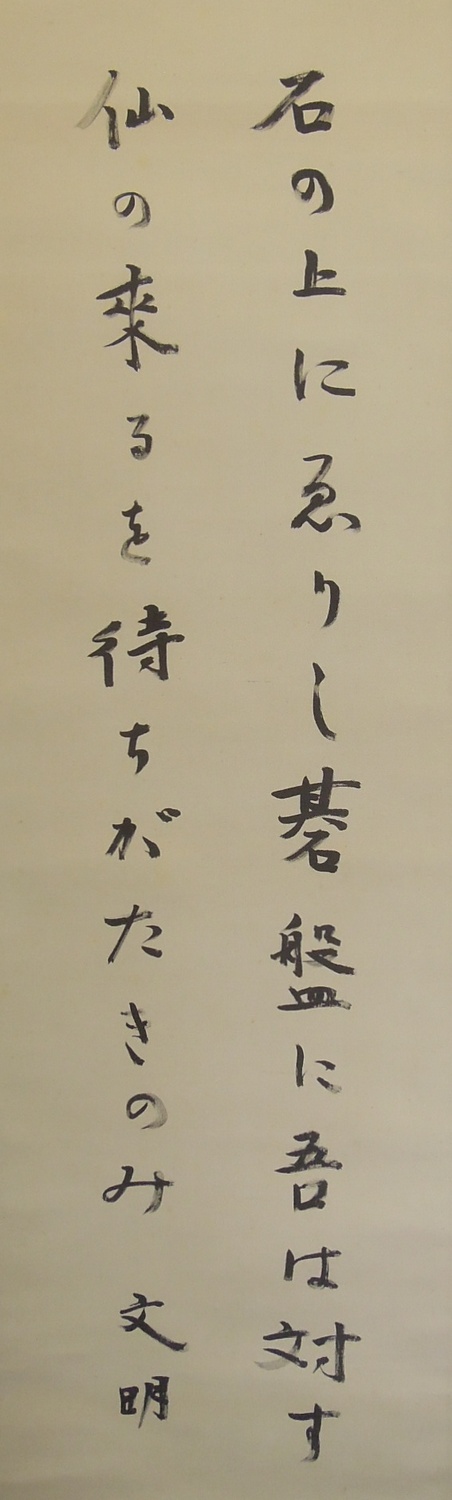 石の上にゑりし碁盤に吾は対す
仙の來るを待ちがたきのみ 文明